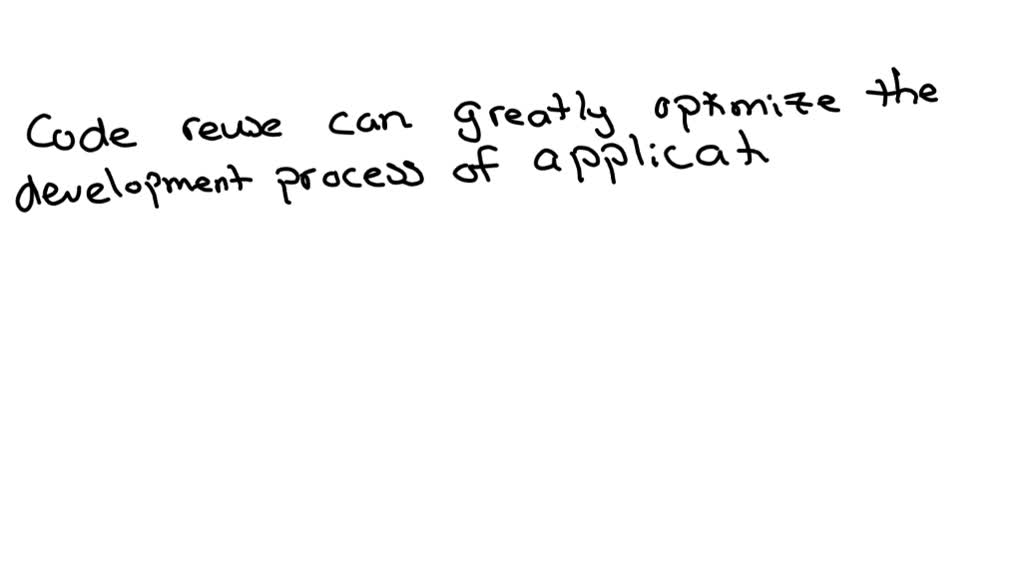 Code reuse can greatly optimize the
development process of applicati